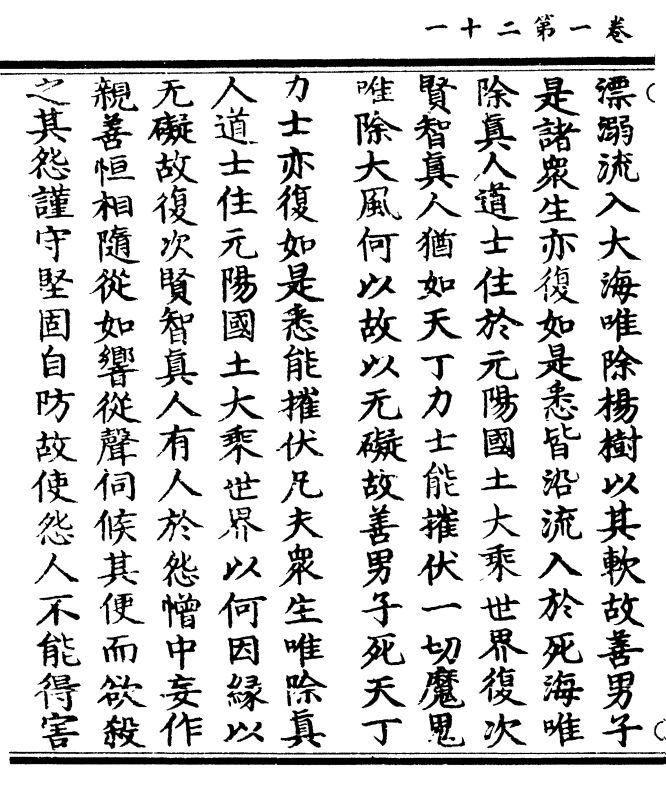 卷一第二十一
漂溺流入大海唯除楊樹以其軟故善男子
是諸衆生亦復如是悉皆沿流入於死海唯
除真人道士住於元陽國土大乘世界復次
賢智真人猶如天丁力士能摧伏一切魔鬼
唯除大風何以故以无礙故善男子死天丁
力士亦復如是悉能摧伏凡夫衆生唯除真
人道士住元陽國土大乘世界以何因緣以
无礙故復次賢智真人有人於怨憎中妄作
親善恒相隨從如響從聲伺候其便而欲殺
之其怨謹守堅固自防故使怨人不能得害